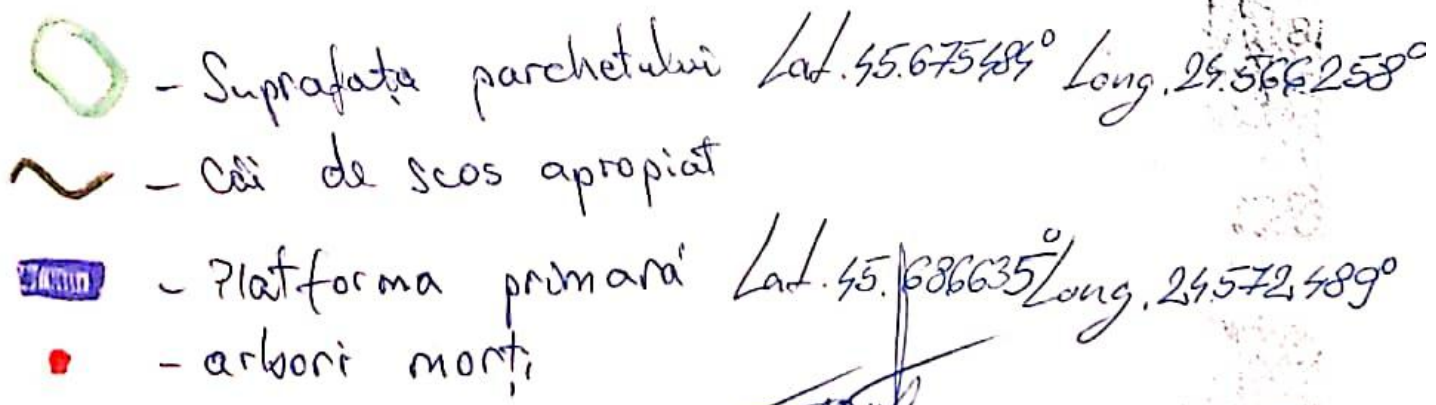 - Suprafața parchetului Lat. 45.675484° Long. 24.566258°
- Căi de scos apropiat
- Platforma primară Lat. 45.686635° Long. 24.572489°
- arbori morți